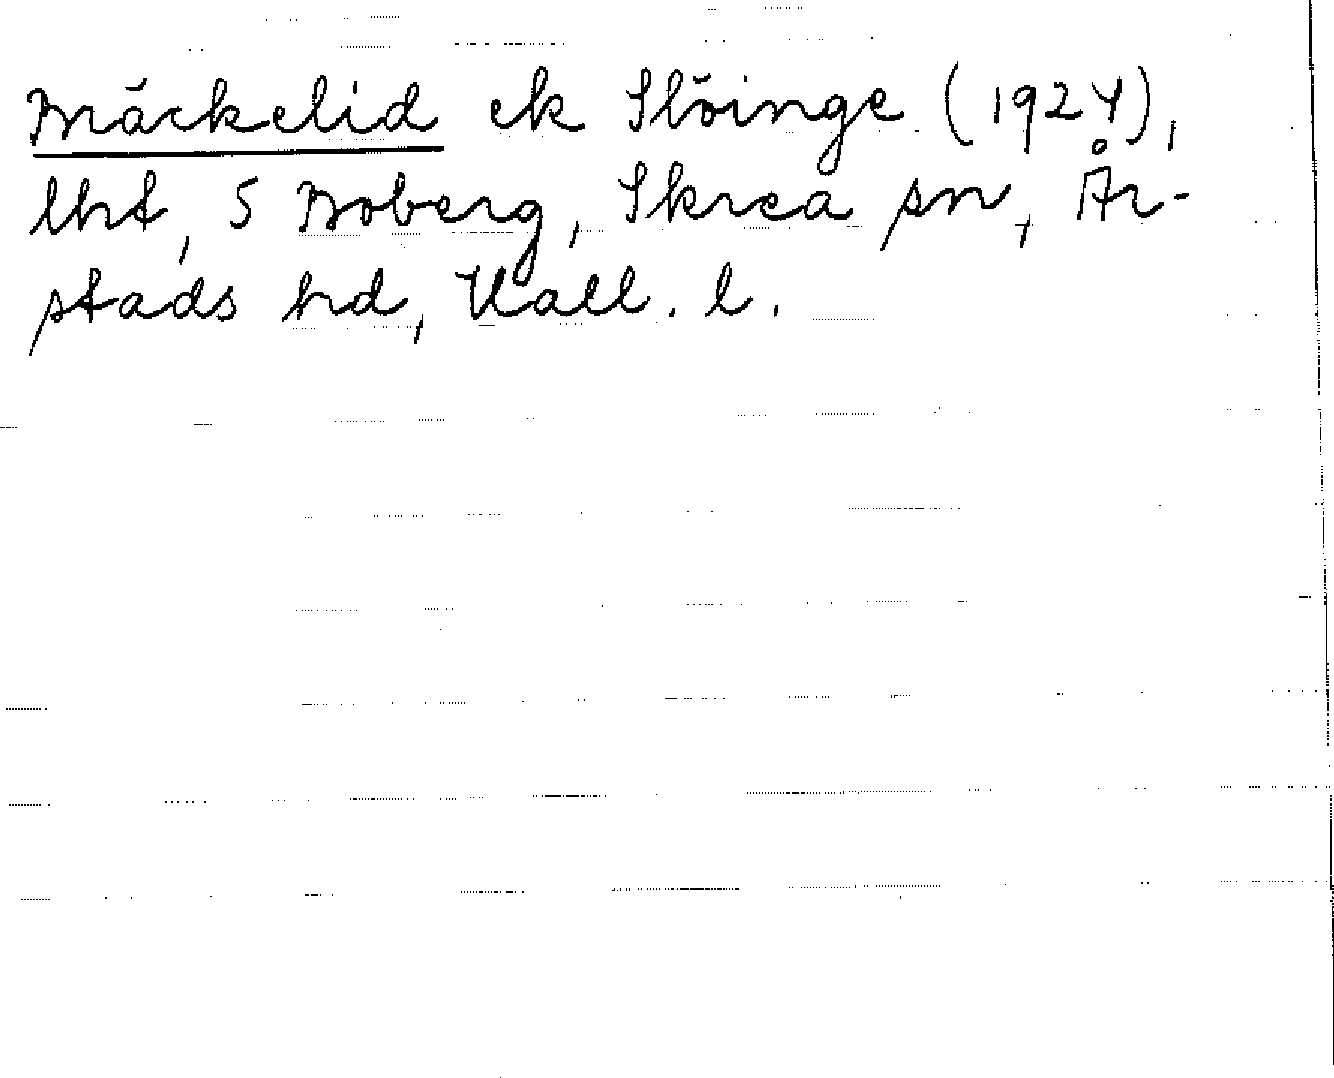 Mäckelid ek Slöinge (1924),
lht, S Boberg, Skrea sn, År-
stads hd, Hall. l.